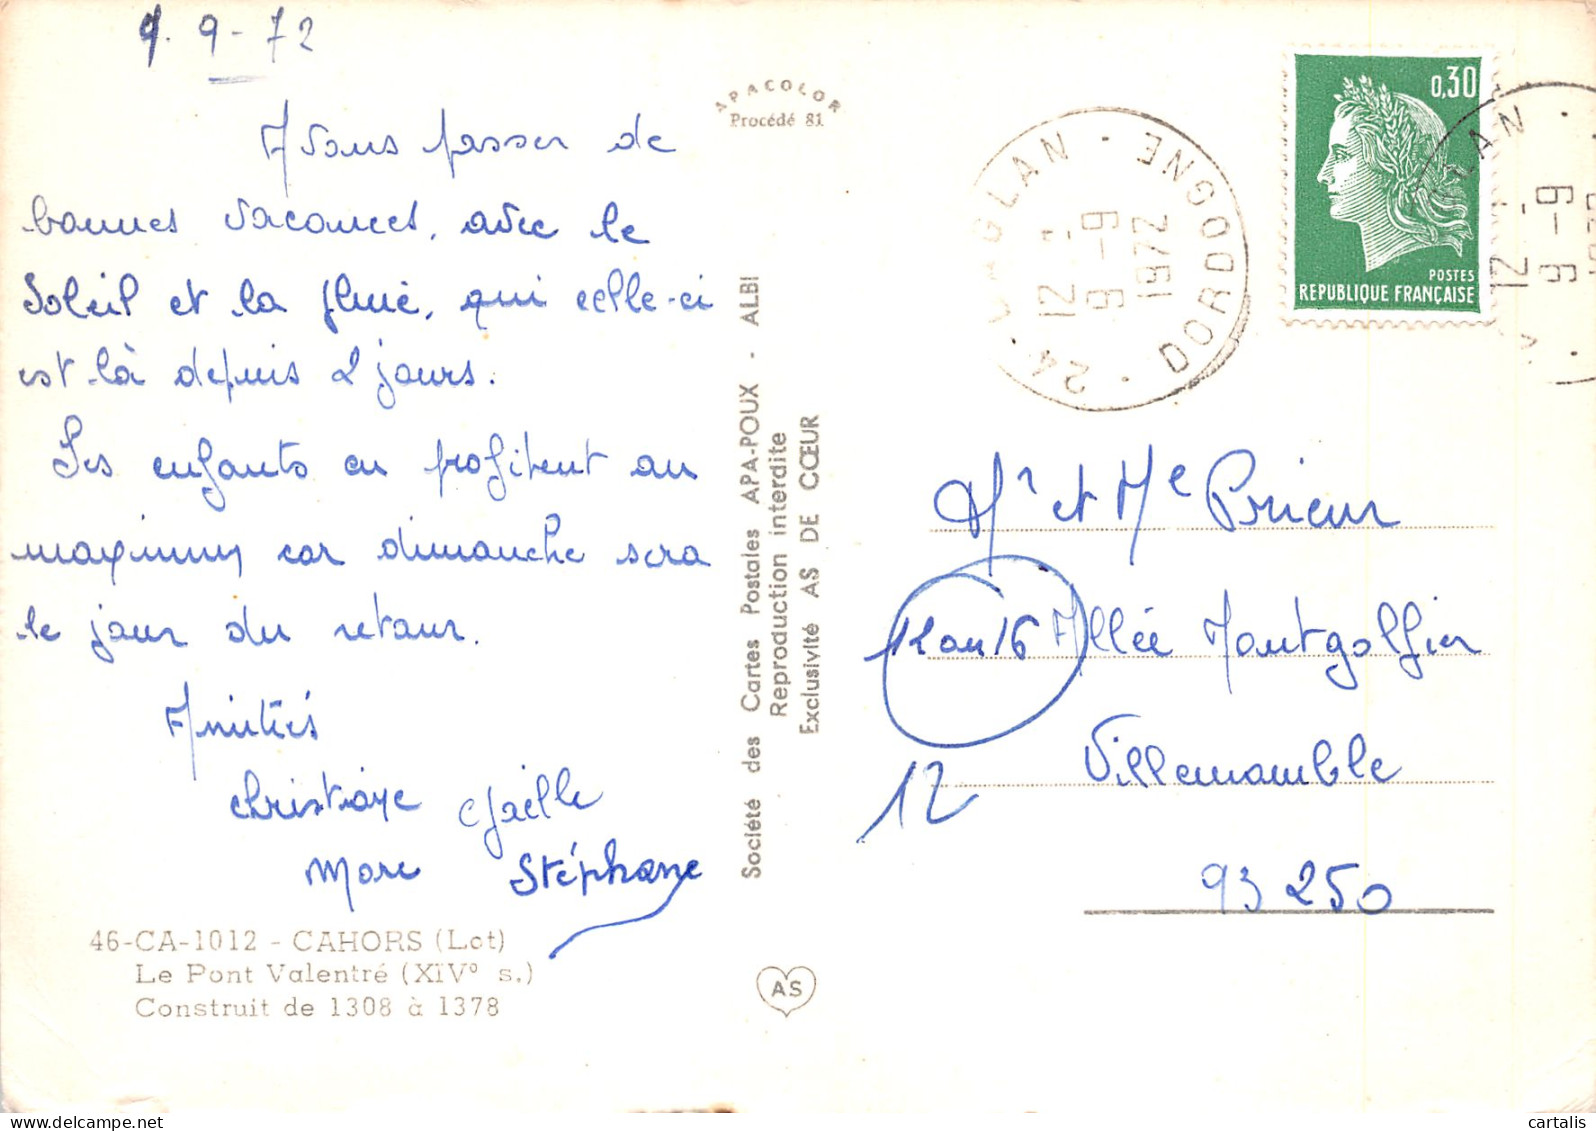 9-9-72
Avons passer de
bonnes vacances, avec le
Soleil et la pluie, qui celle-ci
est là depuis 2 jours.
Les enfants en profitent au
maximum car dimanche sera
le jour du retour.
Amitiés
christiane Gaëlle
Marc Stéphane
46-CA-1012 - CAHORS (Lot)
Le Pont Valentré (XIV° s.)
Construit de 1308 à 1378
APACOLOR
Procédé 81
Société des Cartes Postales APA-POUX - ALBI
Reproduction interdite
Exclusivité AS DE CŒUR
AS
24 - DAGLAN - DORDOGNE
12 -
6-9
1972
0,30
POSTES
REPUBLIQUE FRANÇAISE
Mr et Me Prieur
12 ou 16 Allée Montgolfier
Villemomble
12
93250
cartalis
www.delcampe.net